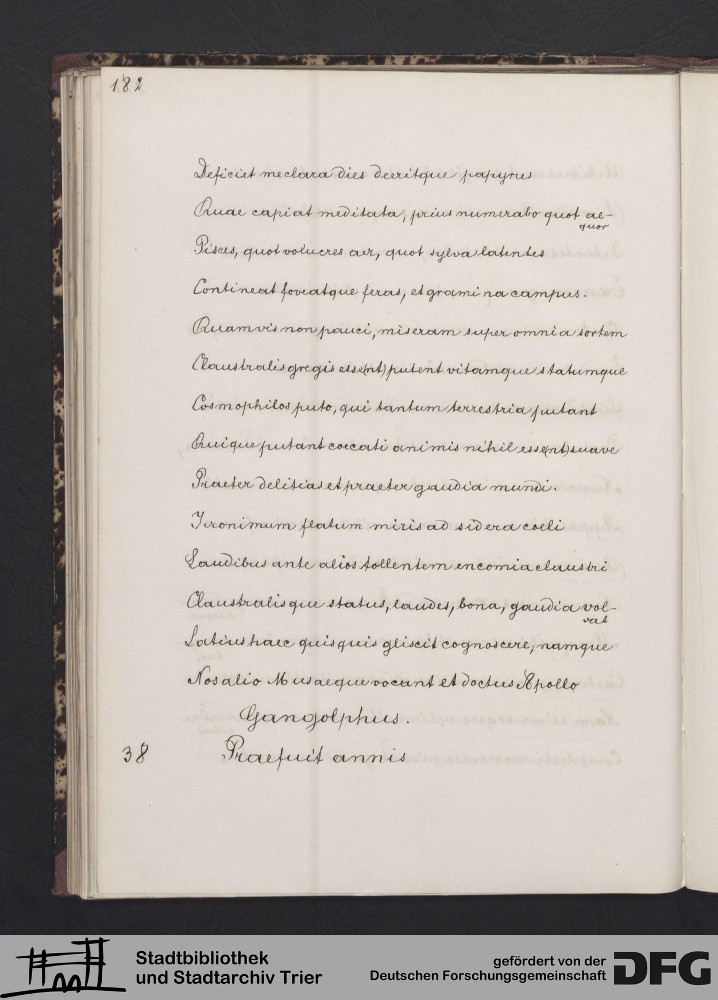 182
Deficiet me clara dies deeritque papyrus
Quae capiat meditata, prius numerabo quot ae-
quor
Pisces, quot volucres aer, quot sylva latentes
Contineat foveatque feras, et gramina campus.
Quamvis non pauci, miseram super omnia sortem
Claustralis gregis esse(nt) putent vitamque statumque
Cosmophilos puto, qui tantum terrestria putant
Quique putant coecati animis nihil esse(nt) suave
Praeter delitias et praeter gaudia mundi.
Jeronimum flatum miris ad sidera coeli
Laudibus ante alios tollentem encomia claustri
Claustralisque status, laudes, bona, gaudia vol-
vat
Latius haec quisquis gliscit cognoscere, namque
Nos alio Musaeque vocant et doctus Apollo
Gangolphus.
38 Praefuit annis
Stadtbibliothek
und Stadtarchiv Trier
gefördert von der
Deutschen Forschungsgemeinschaft
DFG